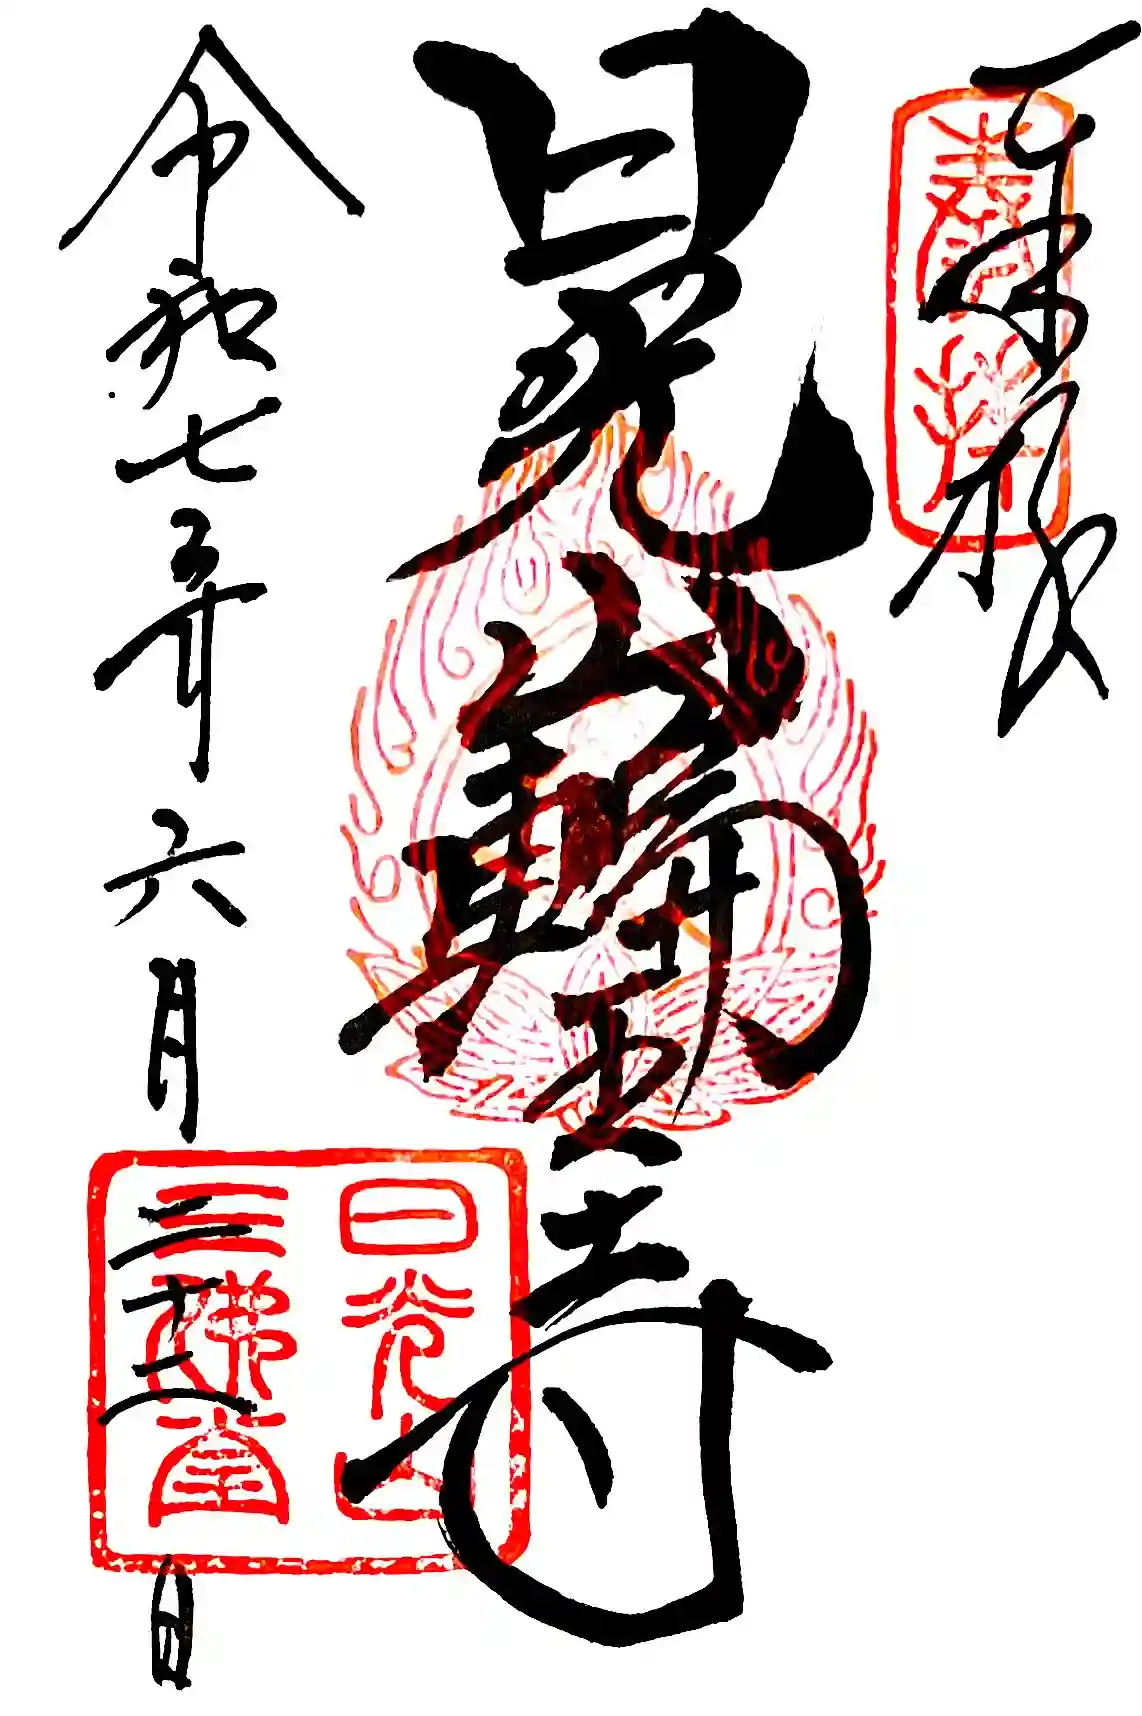 奉拝
日光山輪王寺
日光山
三佛堂
令和七年六月二十二日